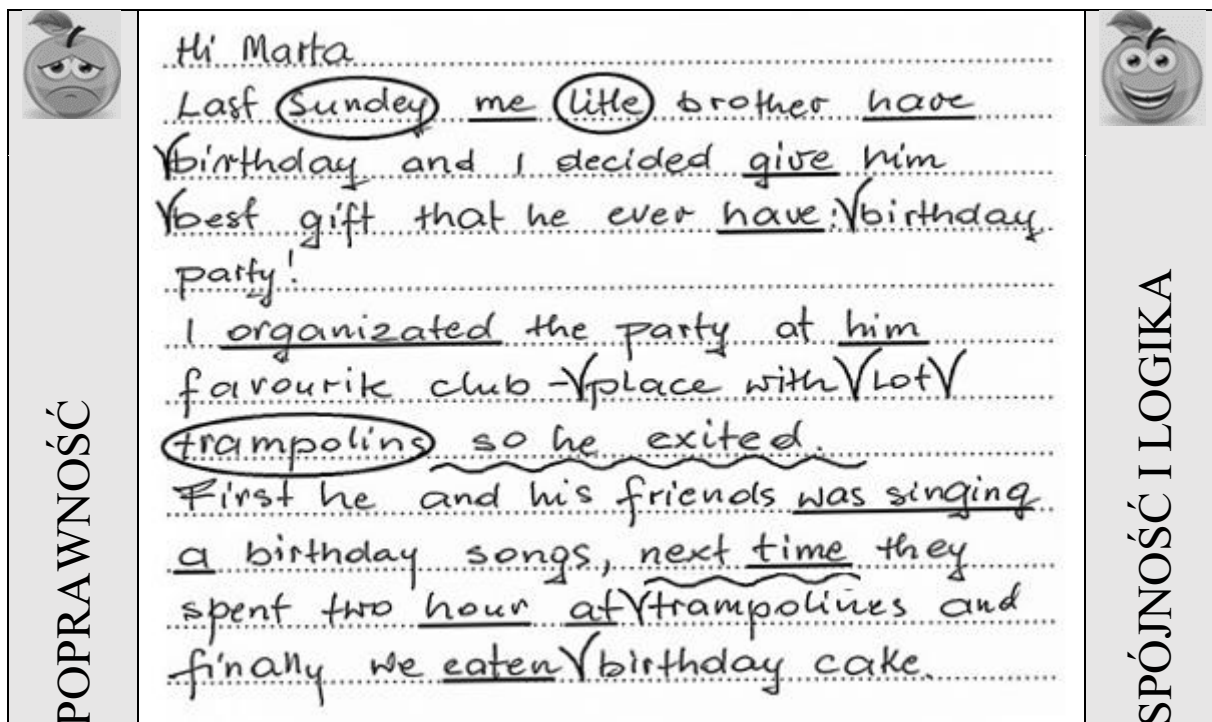 POPRAWNOŚĆ
Hi Marta
Last Sundey me litle brother have
√birthday and I decided give him
√best gift that he ever have:√birthday
party!
I organizated the party at him
favourite club -√place with √lot√
trampolins so he exited.
First he and his friends was singing
a birthday songs, next time they
spent two hour at√trampolines and
finally we eaten√birthday cake.
SPÓJNOŚĆ I LOGIKA